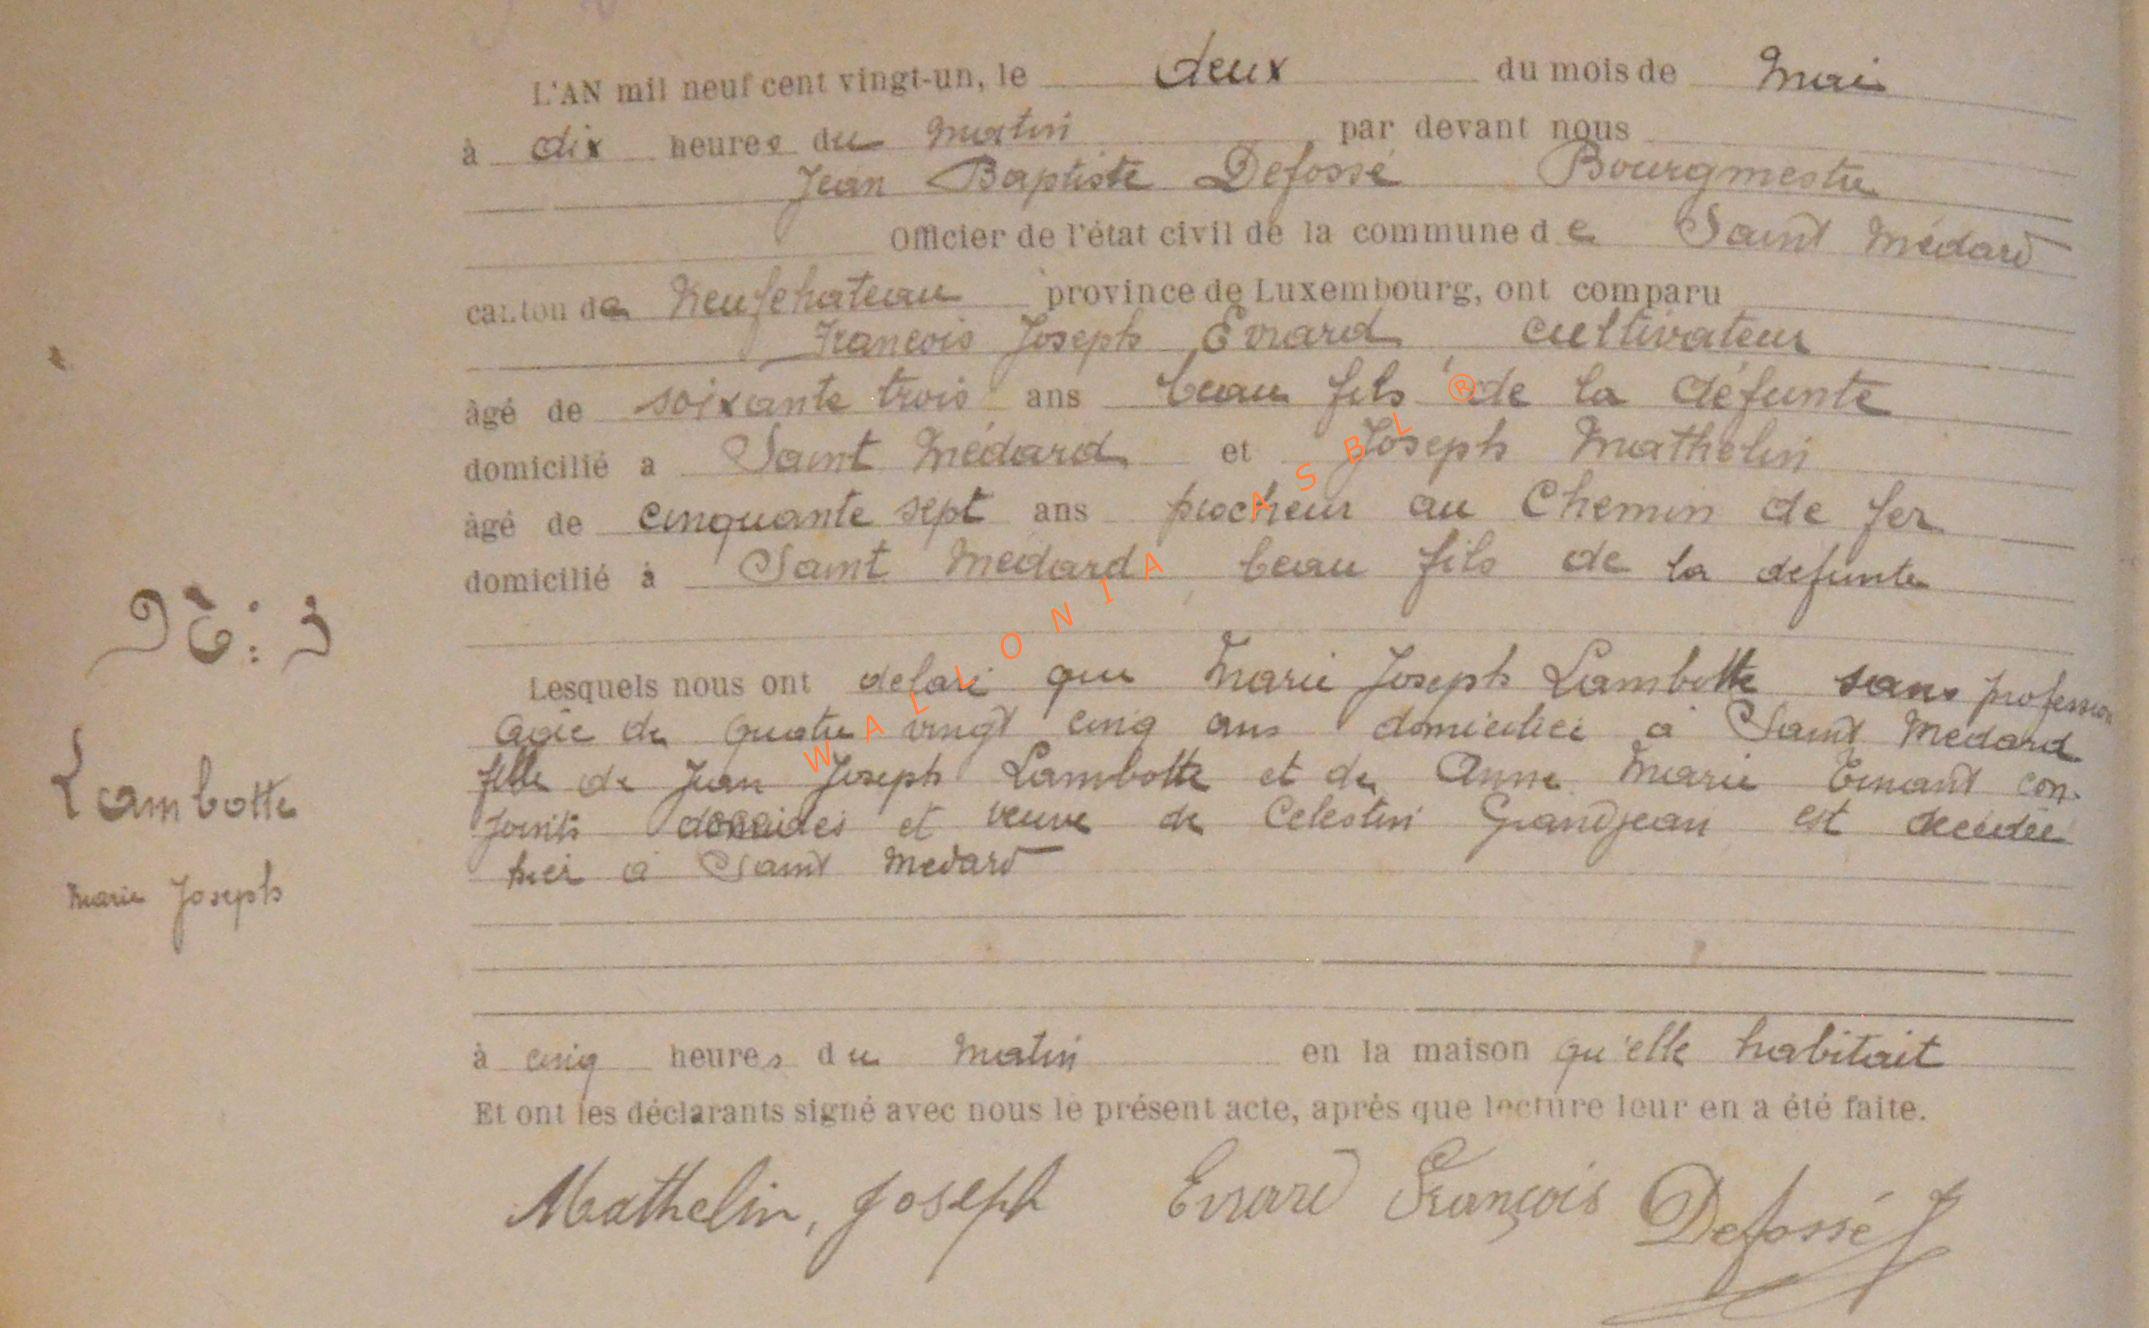 L'AN mil neuf cent vingt-un, le deux du mois de Mai
à dix heures du Matin par devant nous
Jean Baptiste Defossé Bourgmestre
Officier de l'état civil de la commune de Saint Médard
canton de Neufchateau province de Luxembourg, ont comparu
Francois Joseph Evrard cultivateur
âgé de soixante trois ans beau fils de la défunte
domicilié a Saint Médard et Joseph Mathelin
âgé de cinquante sept ans piocheur au Chemin de fer
domicilié à Saint Médard beau fils de la defunte
N°: 3
Lesquels nous ont que Marie Joseph Lambotte sans profession
agée de quatre vingt cinq ans domiciliée à Saint Medard
Lambotte
fille de Jean Joseph Lambotte et de Anne Marie con-
joints et veuve de Celestin Grandjean est décédée
Marie Joseph
hier à Saint Medard
à cinq heures du Matin en la maison qu'elle habitait
Et ont les déclarants signé avec nous le présent acte, après que lecture leur en a été faite.
Mathelin, Joseph Evrard François Defossé J
WALLONIA ASBL ®